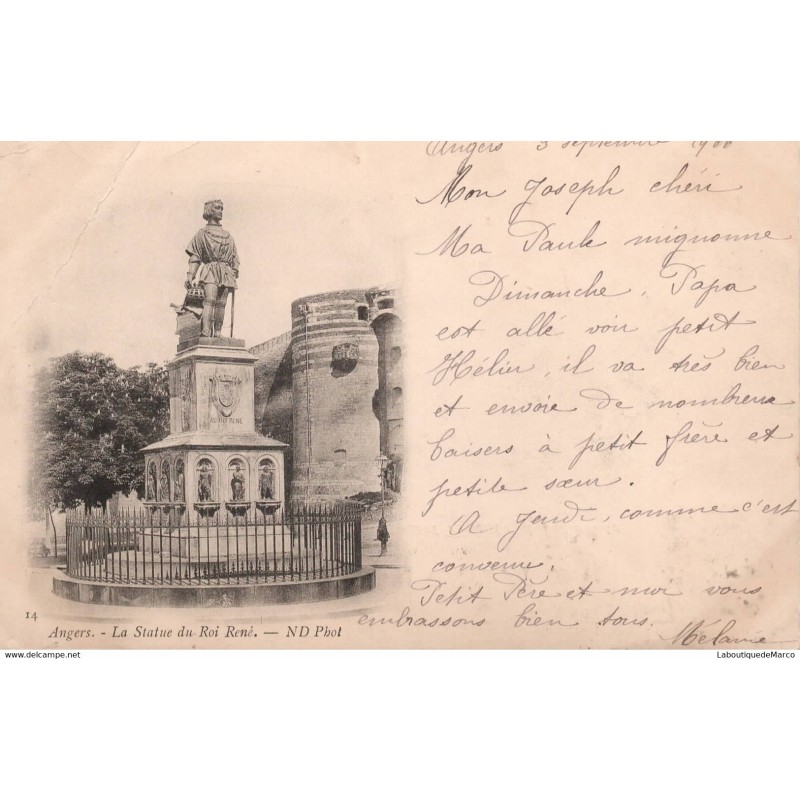 Angers 3 septembre 1900
Mon Joseph chéri
Ma Paule mignonne
Dimanche, Papa
est allé voir petit
Hélier, il va très bien
et envoie de nombreux
baisers à petit frère et
petite sœur.
A Jeudi, comme c'est
convenu.
Petit Père et moi vous
embrassons bien tous.
Mélanie
AU ROI RENÉ
14
Angers. - La Statue du Roi René. — ND Phot
www.delcampe.net
LaboutiquedeMarco